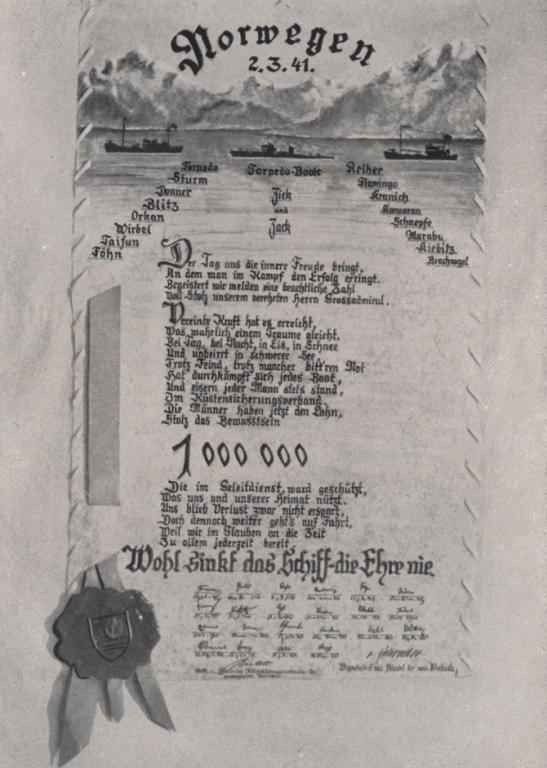 Norwegen
2.3.41.
Torpedo
Sturm
Donner
Blitz
Orkan
Wirbel
Taifun
Föhn
Torpedo-Boote
Zick
und
Zack
Reiher
Flamingo
Kranich
Kormoran
Schnepfe
Marabu
Kiebitz
Brachvogel
Der Tag uns die innere Freude bringt,
An dem man im Kampf den Erfolg erringt.
Begeistert wir melden eine beachtliche Zahl
Voll Stolz unserem verehrten Herrn Grossadmiral.
Vereinte Kraft hat es erreicht,
Was wahrlich einem Traume gleicht.
Bei Tag, bei Nacht, in Eis, in Schnee
Und unbeirrt in schwerer See
Trotz Feind, trotz mancher bitt'ren Not
Hat durchkämpft sich jedes Boot,
Und eisern jeder Mann stets stand,
Im Küstensicherungsverband.
Die Männer haben jetzt den Lohn,
Stolz das Bewusstsein
1000 000
Die im Geleitdienst, ward geschützt,
Was uns und unserer Heimat nützt.
Uns blieb Verlust zwar nicht erspart,
Doch dennoch weiter geht's auf Fahrt,
Weil wir im Glauben an die Zeit
Zu allem jederzeit bereit.
Wohl sinkt das Schiff-die Ehre nie